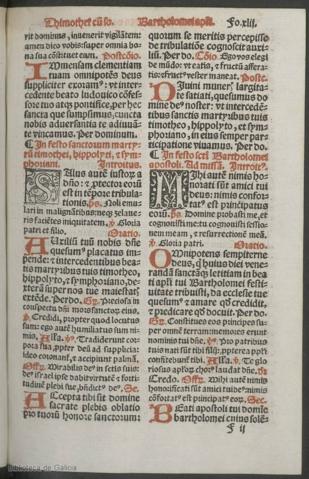 Thimothei cū so. Bartholomei apli. Fo. xlij.
rit dominus, inuenerit vigilātem:
amen dico vobis: super omnia bo
na sua cōstituet eum. Postcōio.
clementiam
tuam omnipotēs deus
suppliciter exoram⁹: vt inter
cedente beato ludouico cōfes
sore tuo atqȝ pontifice, per hec
sancta que sumpsimus, cuncta
nobis aduersantia te adiuuā
te vincamus. Per dominum.
In festo sanctorum marty
rū timothei, hippolyti, ⁊ sym
phoriani. Introitus.
SAlus autē iustoꝝ a
dn̄o: ⁊ ꝓtectoꝛ eoꝝ
est in tēpore tribula
tionis. ps. Noli emu
lari in malignātibus: neqȝ zelaue
ris faciētes iniquitatem. Gloria
patri et filio. Oratio.
AUxiliū tuū nobis dn̄e
quesum⁹ placatus im
pende: ⁊ intercedentibus bea
tis martyribus tuis timotheo,
hippolyto, ⁊ symphoriano, de
xterā super nos tue maiestatꝭ
extēde. Per do. Preciosa in
conspectu dn̄i mors sanctoꝝ eius.
Credidi, propter quod locutus
sum: ego autē humiliatus sum ni
mis. Alla. Tradiderunt cor
pora sua propter deū ad supplicia:
ideo coronant̄, ⁊ accipiunt palmā.
Offꝫ. Mirabilis deus in sctis suis:
deus israel ipse dabit virtutē ⁊ forti
tudinē plebi sue, bn̄dict⁹ de⁹. Sec.
ACcepta tibi sit domine
sacrate plebis oblatio
pro tuorū honore sanctorum:
quorum se meritis percepisse
de tribulatiōe cognoscit auxi
lium. Per do. Cōio. Ego vos elegi
de mūdo: vt eatis, ⁊ fructū affera
tis: ⁊ fruct⁹ vester maneat. Postc.
DIuini muneris largita
te satiati, quesumus do
mine deus noster: vt interce
dētibus sanctis martyribus tuis
timotheo, hippolyto, et sym
phoriano, in eius semper pars
ticipatione viuamus. Per do.
In festo scti Bartholomei
apostoli. Ad missā. Introit⁹.
MIhi autē nimis ho
norati sūt amici tui
deus: nimis confor
tat⁹ est principatus
eoꝝ. ps. Domine probasti me, et
cognouisti me: tu cognouisti sessio
nem meam, ⁊ resurrectionē meā.
Gloria patri. Oratio.
OMnipotens sempiterne
deus, q̄ huius diei vene
randā sanctāqȝ letitiam in bea
ti apli tui Bartholomei festi
uitate tribuisti, da ecclesie tue
quesum⁹ ⁊ amare qd̄ credidit,
⁊ predicare qd̄ docuit. Per do.
Constitues eos principes su
per omnē terram: memores erunt
nominis tui dn̄e. Pro patribus
tuis nati sūt tibi filij: propterea ppli
confitebunt̄ tibi. Alla. Te glo
riosus aploꝝ chor⁹ laudat dn̄e.
Credo. Offꝫ. Mihi autē nimis
honorificati sūt amici tui de⁹: nimis
cōfortat⁹ est principat⁹ eoꝝ. Sec.
BEati apostoli tui domīe
bartholomei cuius solē⁹
f ij
Biblioteca de Galicia